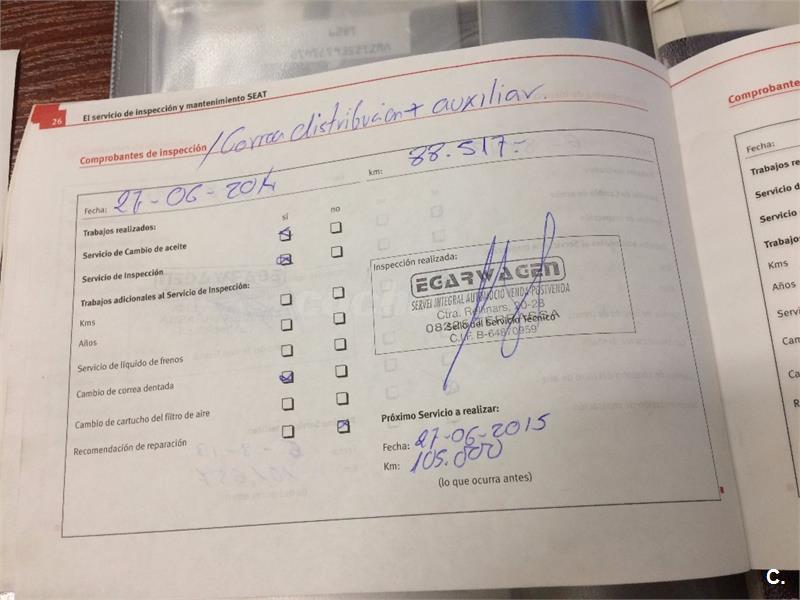 26
El servicio de inspección y mantenimiento SEAT
Comprobantes de inspección / Correa distribucion + auxiliar.
Fecha: 27-06-2014
km: 88.517.-
Trabajos realizados:
sí no
Servicio de Cambio de aceite
Servicio de Inspección
Trabajos adicionales al Servicio de Inspección:
Kms
Años
Servicio de líquido de frenos
Cambio de correa dentada
Cambio de cartucho del filtro de aire
Recomendación de reparación
Inspección realizada:
EGARWAGEN
SERVEI INTEGRAL AUTOMOCIO VENDA POSTVENDA
Ctra. Rellinars, 20-28
TERRASSA
Sello del Servicio Técnico
C.I.F. B-64870959
Próximo Servicio a realizar:
Fecha: 27-06-2015
Km: 105.000
(lo que ocurra antes)
Comprobantes
Fecha:
Trabajos rea
Servicio de
Servicio
Trabajo
Kms
Años
Servi
Cam
Cam
R
C.